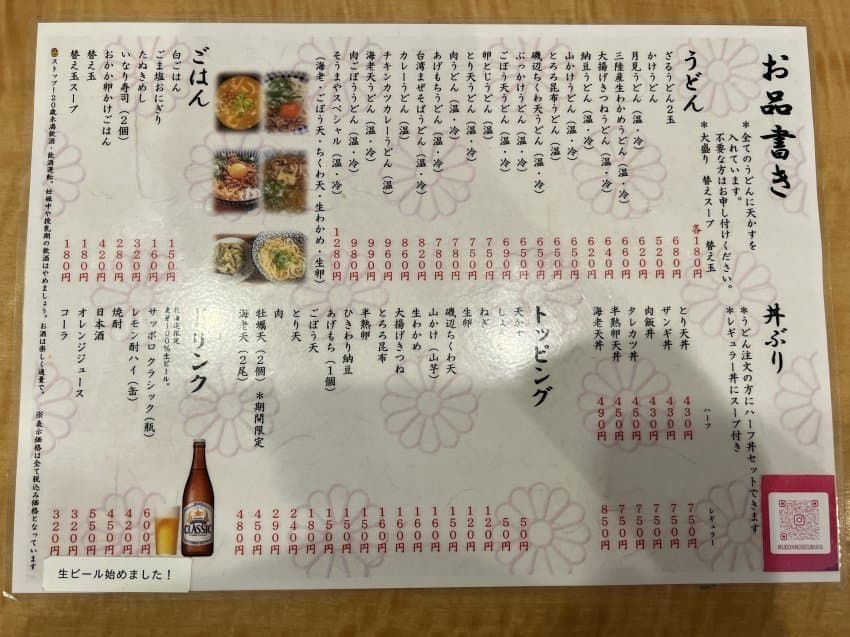 お品書き
*全てのうどんに天かすを
入れています。
不要な方はお申し付けください。
*大盛り 替えスープ 替え玉 各180円
うどん
ざるうどん2玉 680円
かけうどん 520円
月見うどん(温・冷) 620円
三陸産生わかめうどん(温・冷) 660円
大揚げきつねうどん(温・冷) 640円
納豆うどん(温・冷) 620円
山かけうどん(温・冷) 650円
とろろ昆布うどん(温・冷) 650円
磯辺ちくわ天うどん(温・冷) 650円
ぶっかけうどん(温・冷) 650円
ごぼう天うどん(温・冷) 690円
卵とじうどん(温) 650円
とり天うどん(温・冷) 750円
肉うどん(温・冷) 780円
あげもちうどん(温・冷) 780円
台湾まぜそばうどん(温・冷) 820円
カレーうどん(温) 860円
チキンカツカレーうどん(温) 960円
海老天うどん(温・冷) 990円
肉ごぼううどん(温・冷) 980円
そうまやスペシャル(温・冷) 1280円
(海老・ごぼう天・ちくわ天・生わかめ・生卵)
ごはん
白ごはん 150円
ごま塩おにぎり 160円
たぬきめし 320円
いなり寿司(2個) 280円
おかか卵かけごはん 420円
替え玉 180円
替え玉スープ 180円
丼ぶり
*うどん注文の方にハーフ丼セットできます
*レギュラー丼にスープ付き
ハーフ レギュラー
とり天丼 430円 750円
ザンギ丼 430円 750円
肉飯丼 430円 750円
タレカツ丼 450円 750円
半熟卵天丼 450円 750円
海老天丼 490円 850円
トッピング
天かす 50円
しょうが 50円
ねぎ 120円
生卵 120円
磯辺ちくわ天 150円
山かけ(山芋) 160円
生わかめ 160円
大揚げきつね 160円
とろろ昆布 160円
半熟卵 150円
ひきわり納豆 150円
あげもち(1個) 150円
ごぼう天 180円
とり天 240円
肉 290円
牡蠣天(2個)*期間限定 450円
海老天(2尾) 480円
ドリンク
北海道限定
麦芽100%生ビール。
サッポロ クラシック(瓶) 600円
レモン酎ハイ(缶) 420円
焼酎 450円
日本酒 550円
オレンジジュース 320円
コーラ 320円
ストップ!20歳未満飲酒・飲酒運転。妊娠中や授乳期の飲酒はやめましょう。お酒は楽しく適量で。
※表示価格は全て税込み価格となっています
CLASSIC
生ビール始めました!